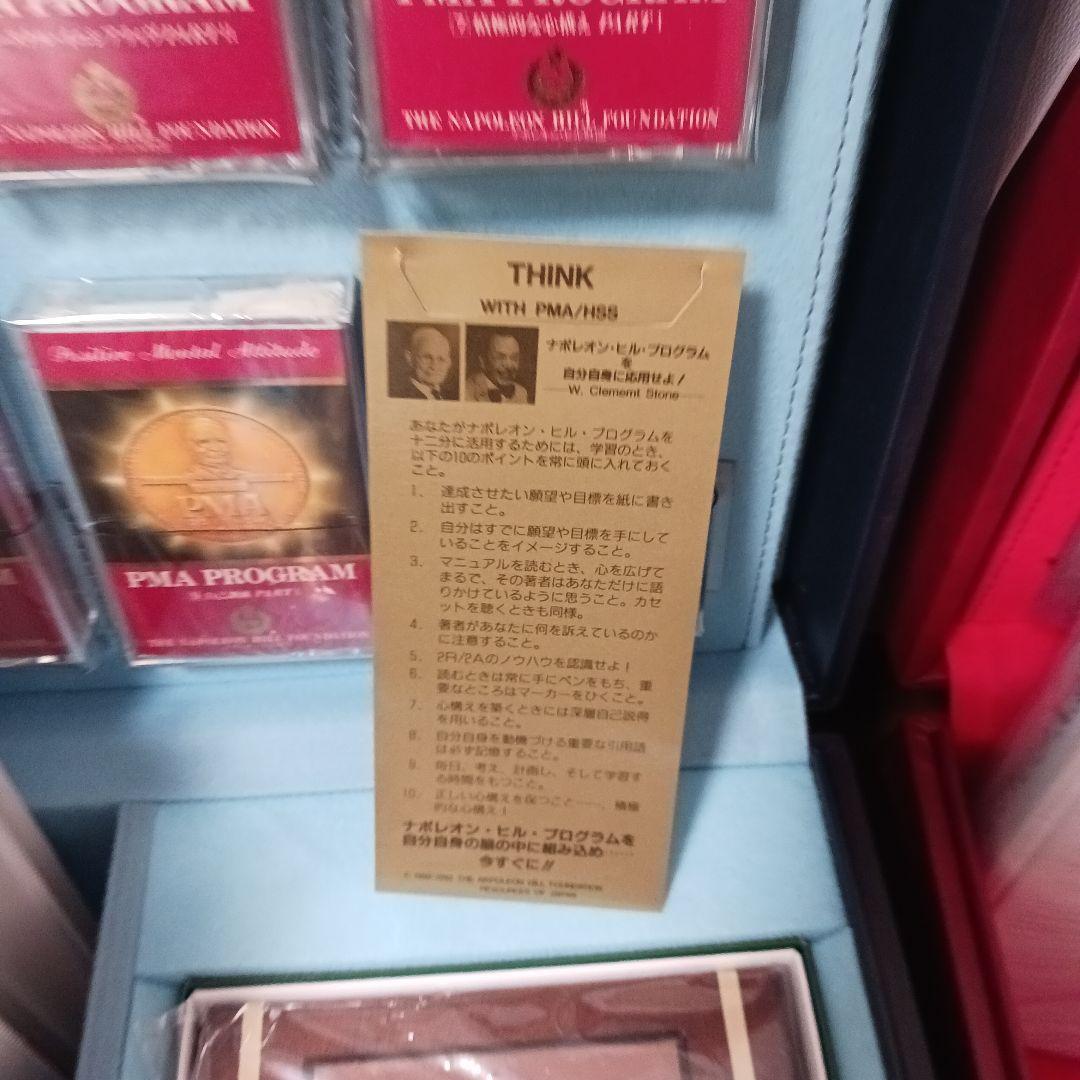 PROGRAM
THE NAPOLEON HILL FOUNDATION
PMA PROGRAM
積極的な心構え PART I
THE NAPOLEON HILL FOUNDATION
Positive Mental Attitude
PMA
PMA PROGRAM
THE NAPOLEON HILL FOUNDATION
THINK
WITH PMA/HSS
ナポレオン・ヒル・プログラム
を
自分自身に応用せよ!
W. Clememt Stone
あなたがナポレオン・ヒル・プログラムを
十二分に活用するためには、学習のとき、
以下の10のポイントを常に頭に入れておく
こと。
1. 達成させたい願望や目標を紙に書き
出すこと。
2. 自分はすでに願望や目標を手にして
いることをイメージすること。
3. マニュアルを読むとき、心を広げて
まるで、その著者はあなただけに語
りかけているように思うこと。カセ
ットを聴くときも同様。
4. 著者があなたに何を訴えているのか
に注意すること。
5. 2R/2Aのノウハウを認識せよ!
6. 読むときは常に手にペンをもち、重
要なところはマーカーをひくこと。
7. 心構えを築くときには深層自己説得
を用いること。
8. 自分自身を動機づける重要な引用語
は必ず記憶すること。
9. 毎日、考え、計画し、そして学習す
る時間をもつこと。
10. 正しい心構えを保つこと……、積極
的な心構え!
ナポレオン・ヒル・プログラムを
自分自身の脳の中に組み込め……
今すぐに!!
THE NAPOLEON HILL FOUNDATION
RESOURCES OF JAPAN